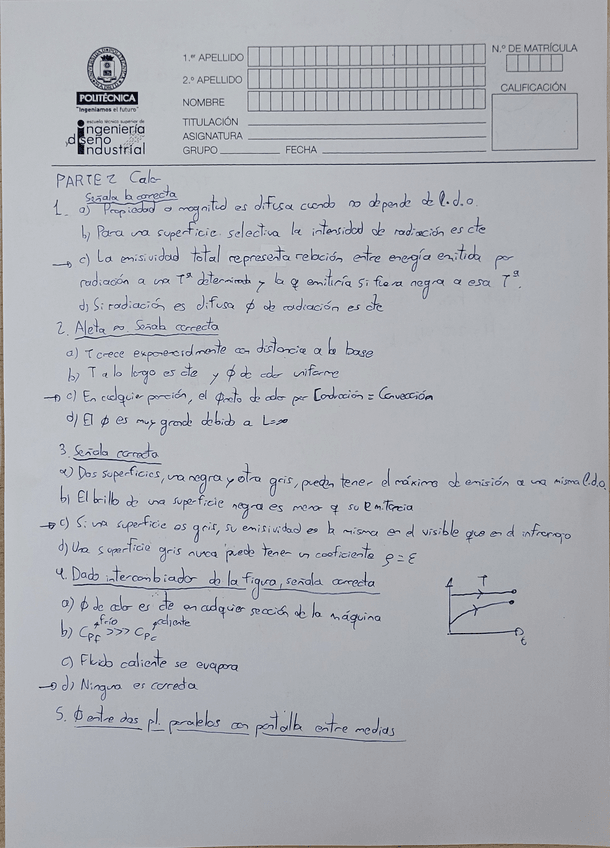 POLITÉCNICA
"Ingeniamos el futuro"
escuela técnica superior de
ingeniería
y diseño
industrial
1.er APELLIDO
2.º APELLIDO
NOMBRE
TITULACIÓN
ASIGNATURA
GRUPO FECHA
N.º DE MATRÍCULA
CALIFICACIÓN
PARTE 2 Calor
Señala la correcta
1. a) Propiedad o magnitud es difusa cuando no depende de l.d.o.
b) Para una superficie selectiva la intensidad de radiación es cte
→ c) La emisividad total representa relación entre energía emitida por
radiación a una Tª determinada y la q emitiría si fuera negra a esa Tª.
d) Si radiación es difusa ϕ de radiación es cte
2. Aleta ∞. Señala correcta
a) T crece exponencialmente con distancia a la base
b) T a lo largo es cte y ϕ de calor uniforme
→ c) En cualquier porción, el ϕneto de calor por Conducción = Convección
d) El ϕ es muy grande debido a L=∞
3. Señala correcta
a) Dos superficies, una negra y otra gris, pueden tener el máximo de emisión a una misma l.d.o.
b) El brillo de una superficie negra es menor q su Emitancia
→ c) Si una superficie es gris, su emisividad es la misma en el visible que en el infrarrojo
d) Una superficie gris nunca puede tener un coeficiente ρ = ε
4. Dado intercambiador de la figura, señala correcta
a) ϕ de calor es cte en cualquier sección de la máquina
b) Cpf frío >>> Cpc caliente
c) Fluido caliente se evapora
→ d) Ninguna es correcta
T
5. ϕ entre dos pl. paralelos con pantalla entre medias